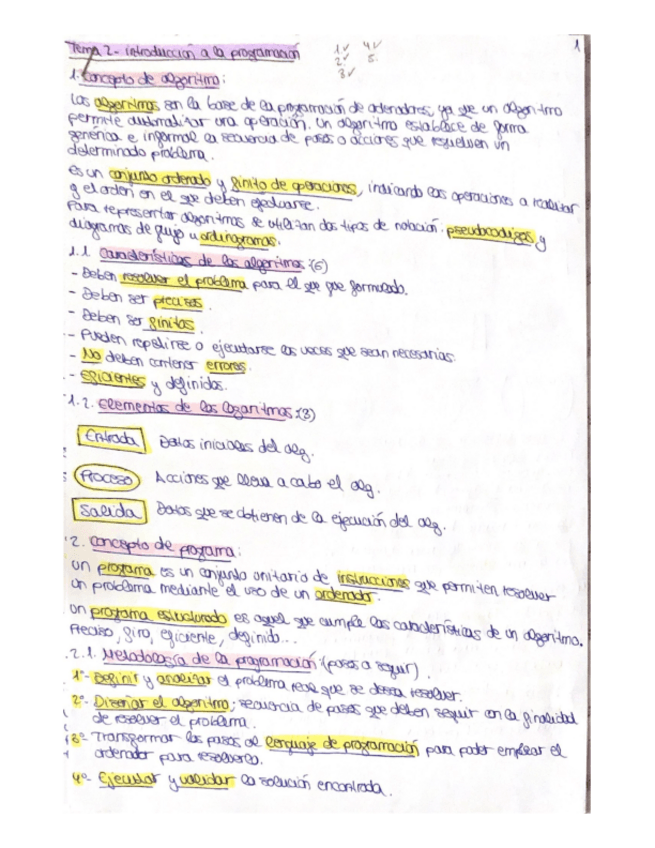 Tema 2 - introducción a la programación
1✓ 4✓
2✓ 5.
3✓
1
1. Concepto de algoritmo:
Los algoritmos son la base de la programación de ordenadores, ya que un algoritmo
permite automatizar una operación. Un algoritmo establece de forma
genérica e informal la secuencia de pasos o acciones que resuelven un
determinado problema.
Es un conjunto ordenado y finito de operaciones, indicando las operaciones a realizar
y el orden en el que deben efectuarse.
Para representar algoritmos se utilizan dos tipos de notación: pseudocódigos y
diagramas de flujo u ordinogramas.
1.1 Características de los algoritmos: (6)
- Deben resolver el problema para el que fue formulado.
- Deben ser precisos.
- Deben ser finitos.
- Pueden repetirse o ejecutarse las veces que sean necesarias.
- No deben contener errores.
- Eficientes y definidos.
1.2. Elementos de los logaritmos: (3)
Entrada Datos iniciales del alg.
Proceso Acciones que lleva a cabo el alg.
Salida Datos que se obtienen de la ejecución del alg.
2. Concepto de programa:
Un programa es un conjunto unitario de instrucciones que permiten resolver
un problema mediante el uso de un ordenador.
Un programa estructurado es aquel que cumple las características de un algoritmo.
Preciso, finito, eficiente, definido...
2.1. Metodología de la programación: (pasos a seguir).
1º- Definir y analizar el problema real que se desea resolver.
2º- Diseñar el algoritmo; secuencia de pasos que deben seguir con la finalidad
de resolver el problema.
3º- Transformar los pasos al lenguaje de programación para poder emplear el
ordenador para resolverlo.
4º- Ejecutar y validar la solución encontrada.